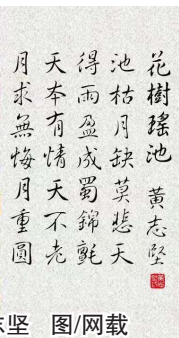 花樹瑤池 黃志堅
池枯月缺莫悲天
得雨盈成蜀錦氈
天本有情天不老
月求無悔月重圓
志坚 图/网载